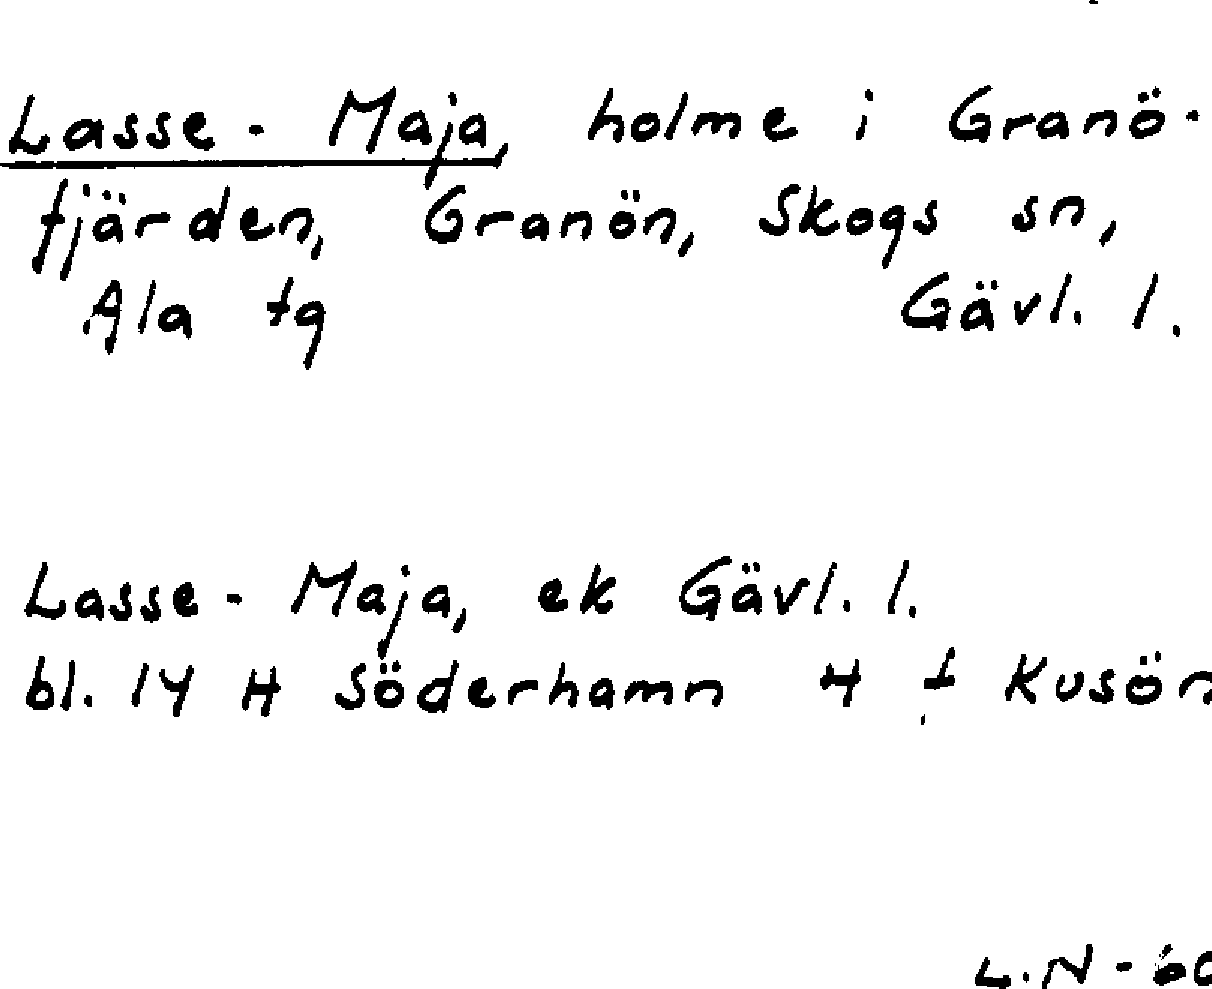 Lasse - Maja, holme i Granö-
fjärden, Granön, Skogs sn,
Ala tg Gävl. l.
Lasse - Maja, ek Gävl. l.
bl. 14 H Söderhamn 4 f Kusön
L.N - 60